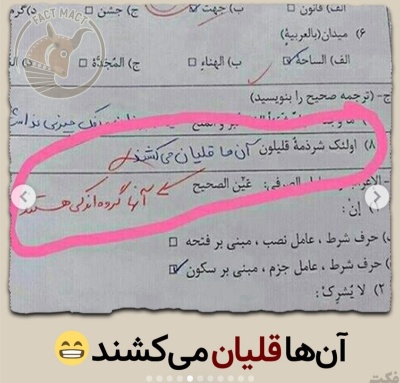 FACT MACT
الف) قانون ب) جهت ج) جشن د)
۶) میدان(بالعربیة)
الف) الساحة ب) الهناء ج) المُجَدَّة
ج- (ترجمه صحیح را بنویسید)
۸) اولئک شرذمة قلیلون آن ها قلیان می کشند
آنها گروه اندکی هستند
عَیِّن الصحیح
۱) اِنْ:
حرف شرط ، عامل نصب ، مبنی بر فتحه
) حرف شرط ، عامل جزم ، مبنی بر سکون
۲) لا یُشرِکْ:
آن‌ها قلیان می‌کشند😁
فکت